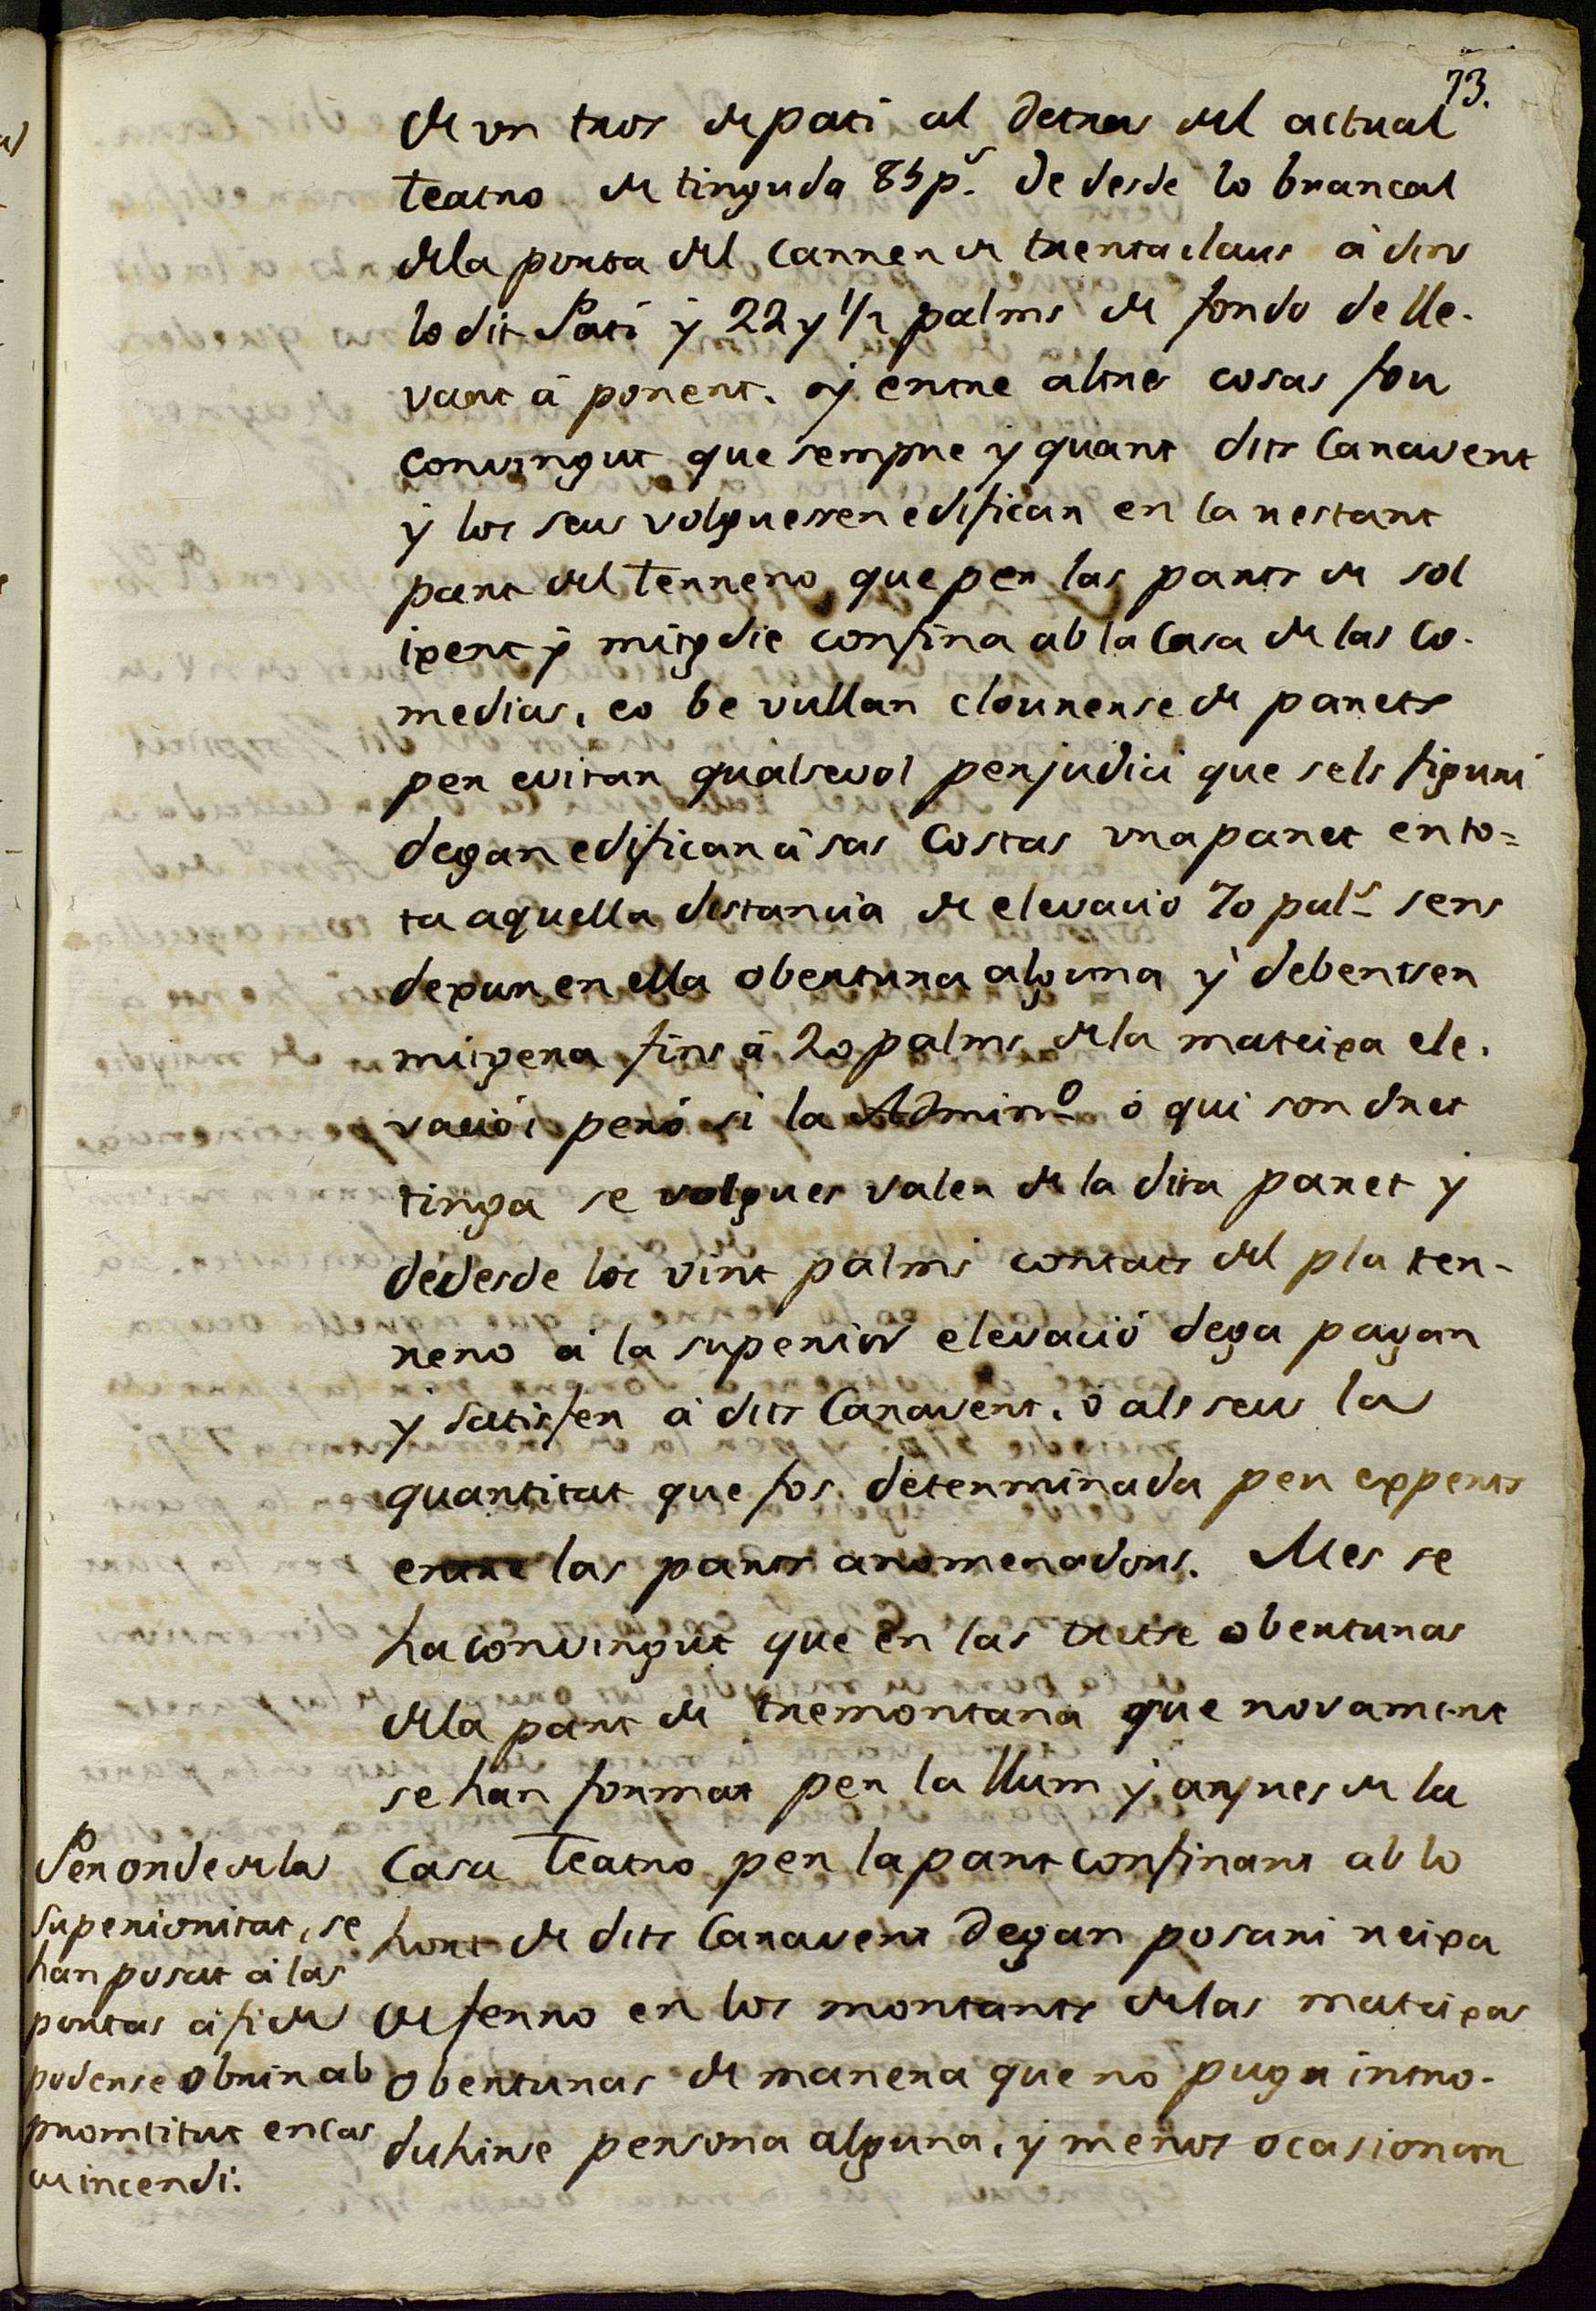 73.
de un tros de pati al detras del actual
Teatro de tinguda 85 p.s de desde lo brancal
de la porta del carrer de trentaclaus á dins
lo dit Pati y 22 y 1/2 palms de fondo de lle-
vant á ponent. y entre altres cosas fou
convingut que sempre y quant dits Canavent
y los seus volguessen edificar en la restant
part del Terreno que per las parts de sol
ixent y mitgdie confina ab la Casa de las Co-
medias, eo be vullan clourerse de parets
per evitar qualsevol perjudici que sels figuri
degan edificar á sas Costas una paret en to=
ta aquella distancia de elevacio 70 pal.s sens
dexar en ella obertura alguna y debent ser
mitgera fins á 20 palms de la mateixa ele-
vació; peró si la Admin.o ó qui son dret
tinga se volgues valer de la dita paret y
dedesde los vint palms contats del pla ter-
reno á la superior elevació dega pagar
y satisfer á dits Canavent, ó als seus la
quantitat que fos determinada per experts
entre las parts anomenadors. Mes se
ha convingut que en las tretse oberturas
de la part de tremontana que novament
se han format per la llum y ayres de la
Casa Teatro per la part confinant ab lo
hort de dits Canavent degan posarsi reixa
de ferro en los montants de las mateixas
oberturas de manera que no puga intro-
duhirse persona alguna, y menos ocasionar
Per orde de la
superioritat, se
han posat á las
portas á fi de
poderse obrir ab
promtitut en cas
de incendi.